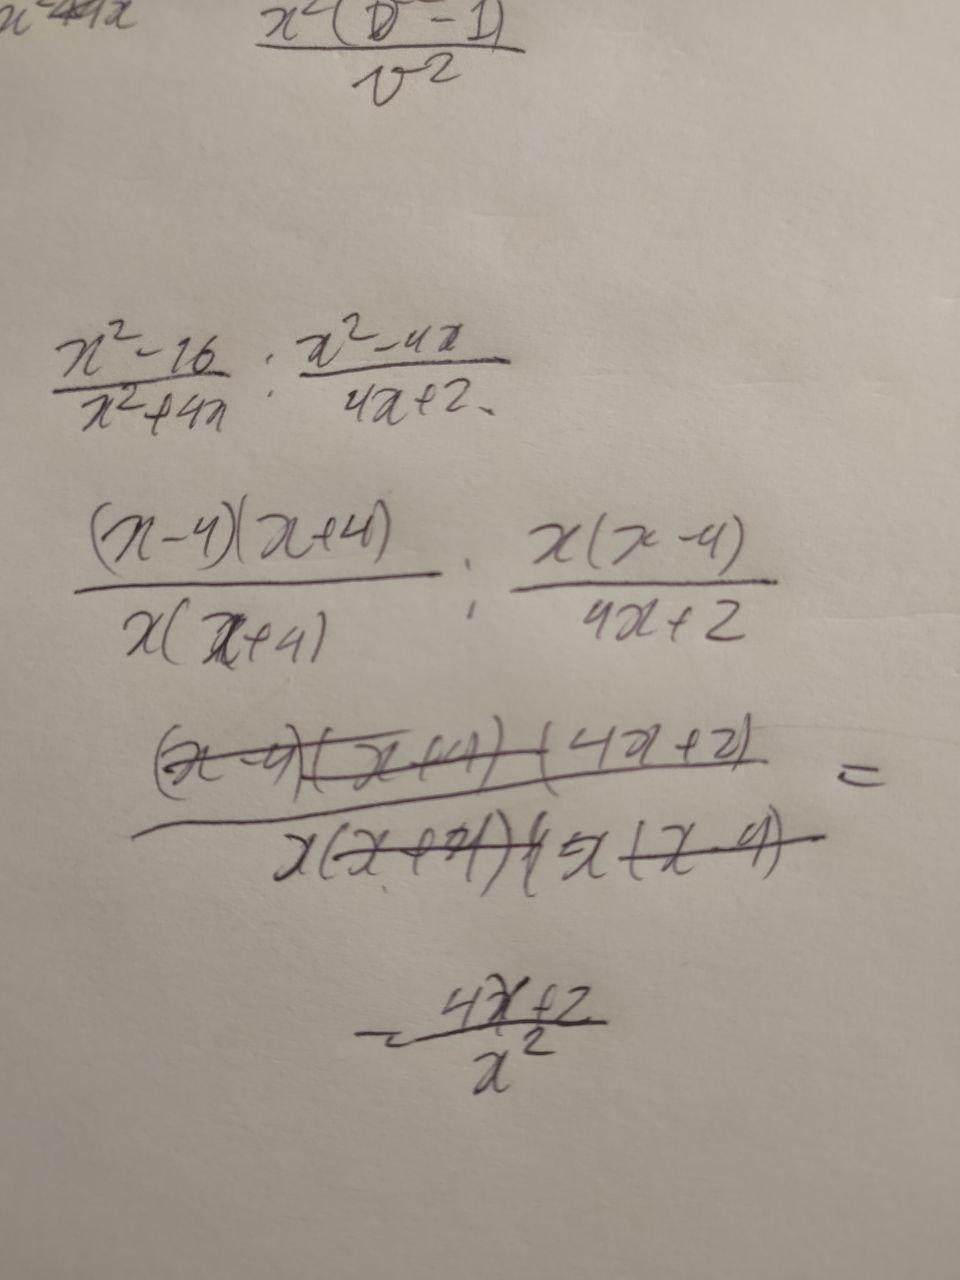 x²+4x x²(b²-1)/v²
(x²-16)/(x²+4x) : (x²-4x)/(4x+2).
((x-4)(x+4))/(x(x+4)) : (x(x-4))/(4x+2)
((x-4)(x+4)(4x+2))/(x(x+4)x(x-4)) =
= (4x+2)/x²